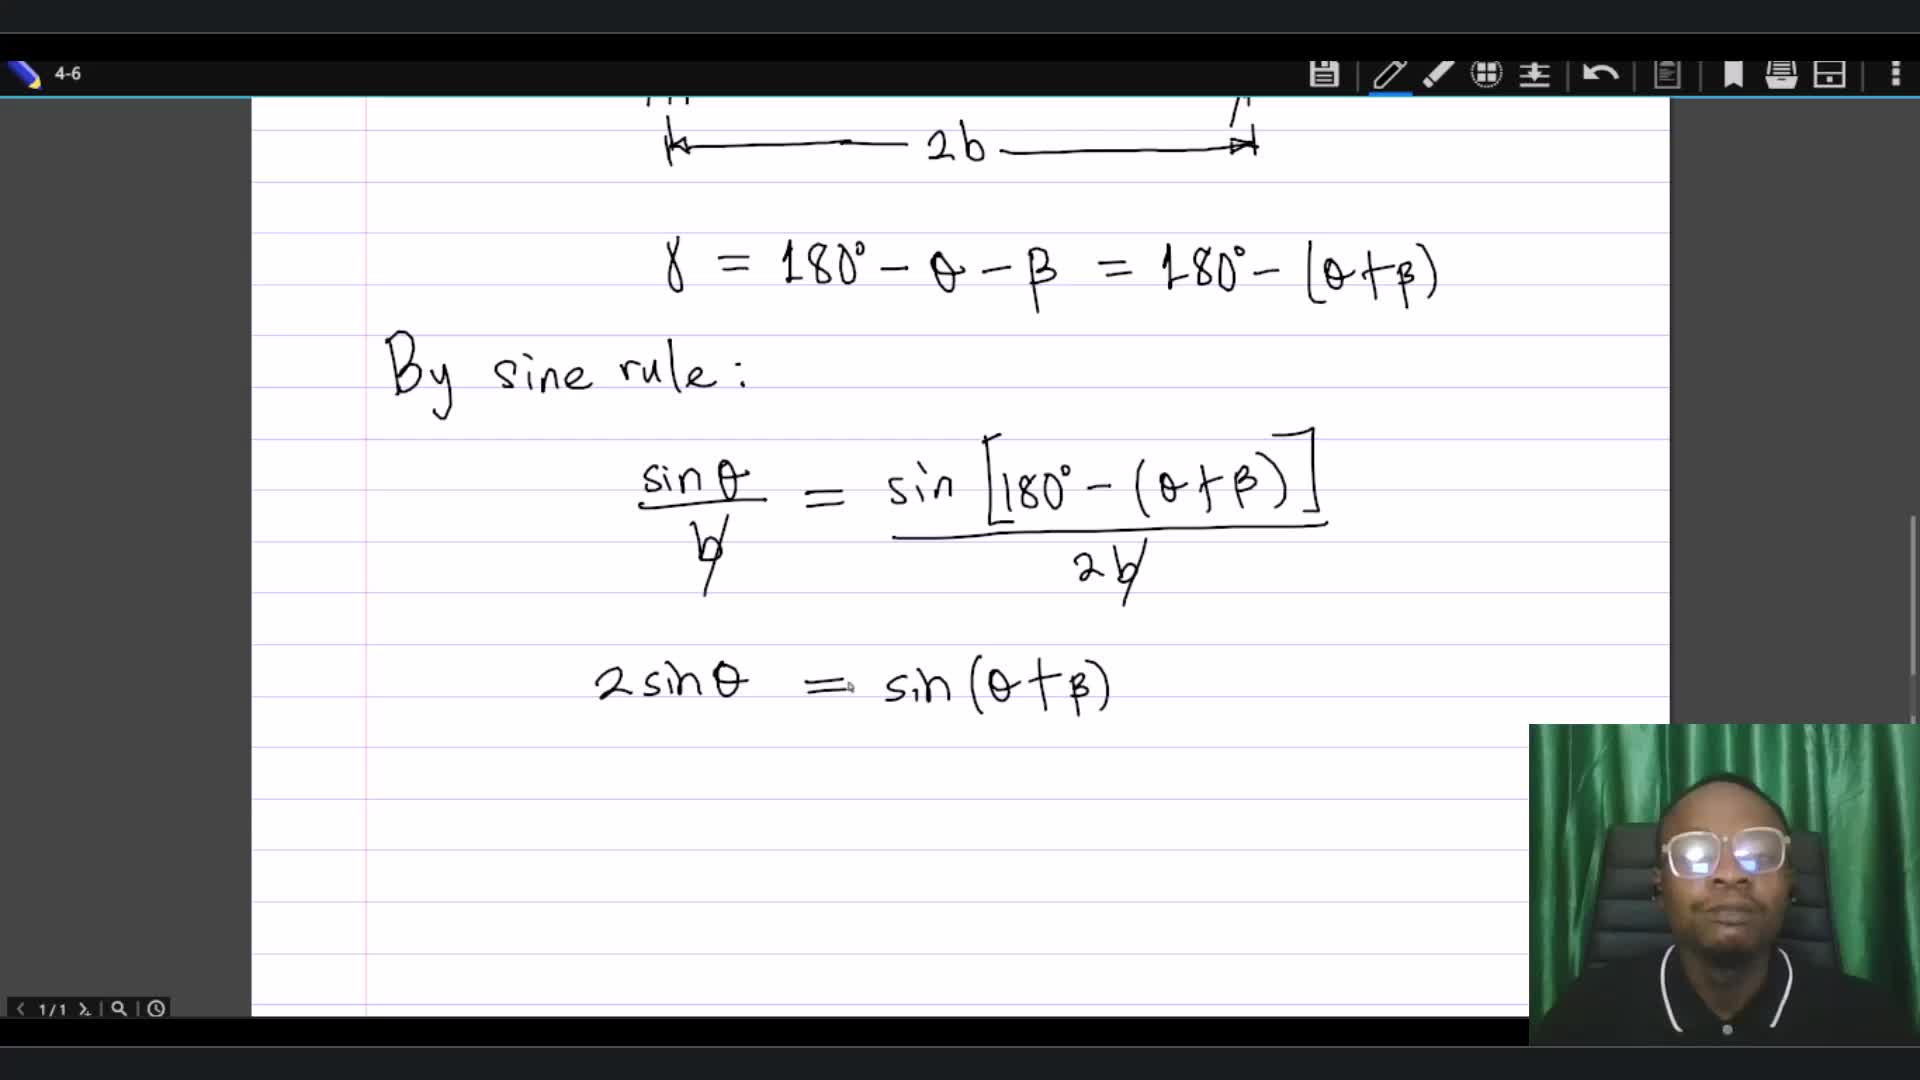 4-6
2b
γ = 180° - θ - β = 180° - (θ+β)
By sine rule:
sin θ / b = sin [180° - (θ+β)] / 2b
2 sin θ = sin (θ+β)
1/1